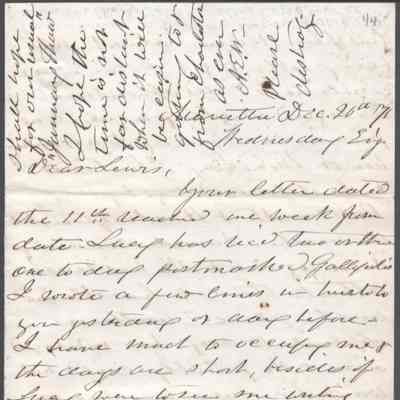 44
Marietta Dec. 20th
Wednesday Eve
Dear Lewis,
Your letter dated
the 11th reached me week from
date. Lucy has rec'd two or three
one to day postmarked Gallipolis
I wrote a few lines in haste to
you yesterday or day before.
I have much to occupy me &
the days are short, besides if
Lucy were to see me writing
I shall hope
for our usual
I hope the
time is not
far distant
when it will
be open
to
from
as can
A.E.W.
Please
destroy